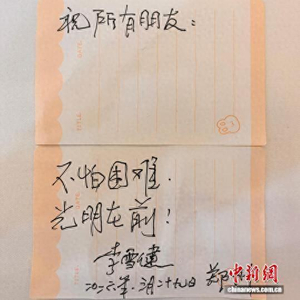 祝所有朋友：
不怕困难.
光明在前！
李雪健
二〇二六年.二月二十九日
郑州
中新网
www.chinanews.com